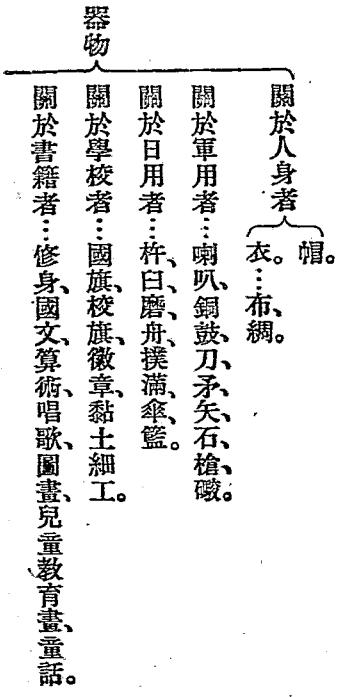 器物
關於人身者
帽。
衣。…布、綢。
關於軍用者…喇叭、銅鼓、刀、矛、矢、石、槍、礮。
關於日用者…杵、臼、磨、舟、撲滿、傘、籃。
關於學校者…國旗、校旗、徽章、黏土細工。
關於書籍者…修身、國文、算術、唱歌、圖畫、兒童教育畫、童話。